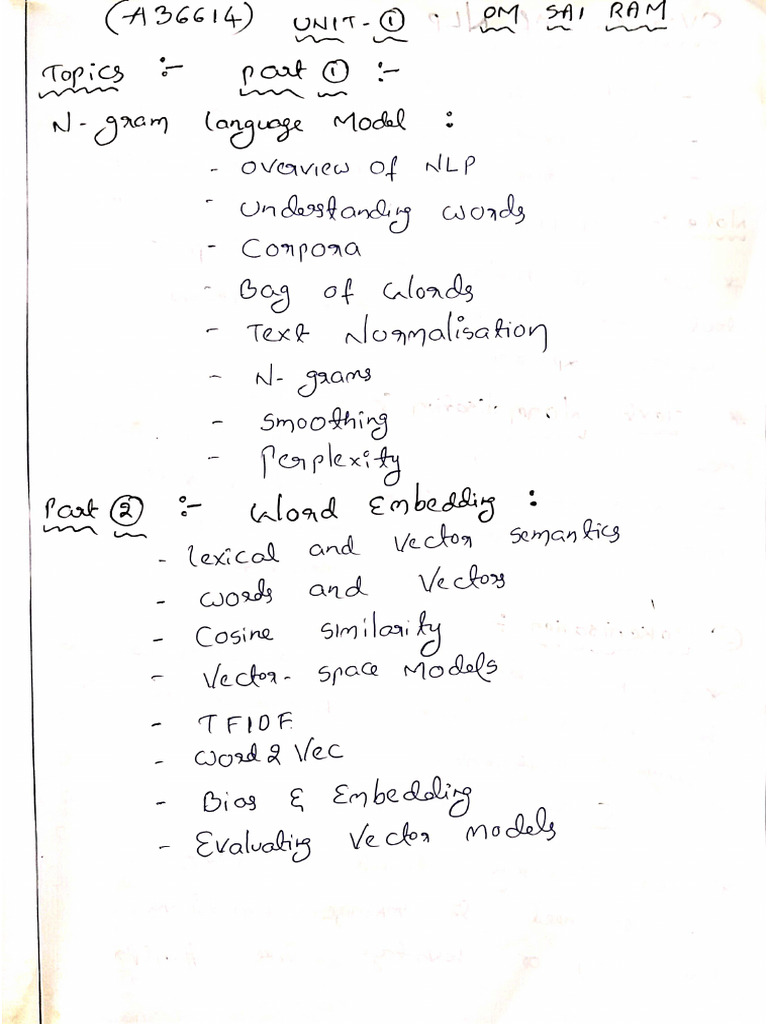 (A36614) UNIT-① OM SAI RAM
Topics :- Part ① :-
N-gram Language Model :
- Overview of NLP
- Understanding words
- Corpora
- Bag of Words
- Text Normalisation
- N-grams
- Smoothing
- Perplexity
Part ② :- Word Embedding :
- Lexical and Vector Semantics
- Words and Vectors
- Cosine Similarity
- Vector-space Models
- TFIDF
- Word2Vec
- Bias & Embedding
- Evaluating Vector Models